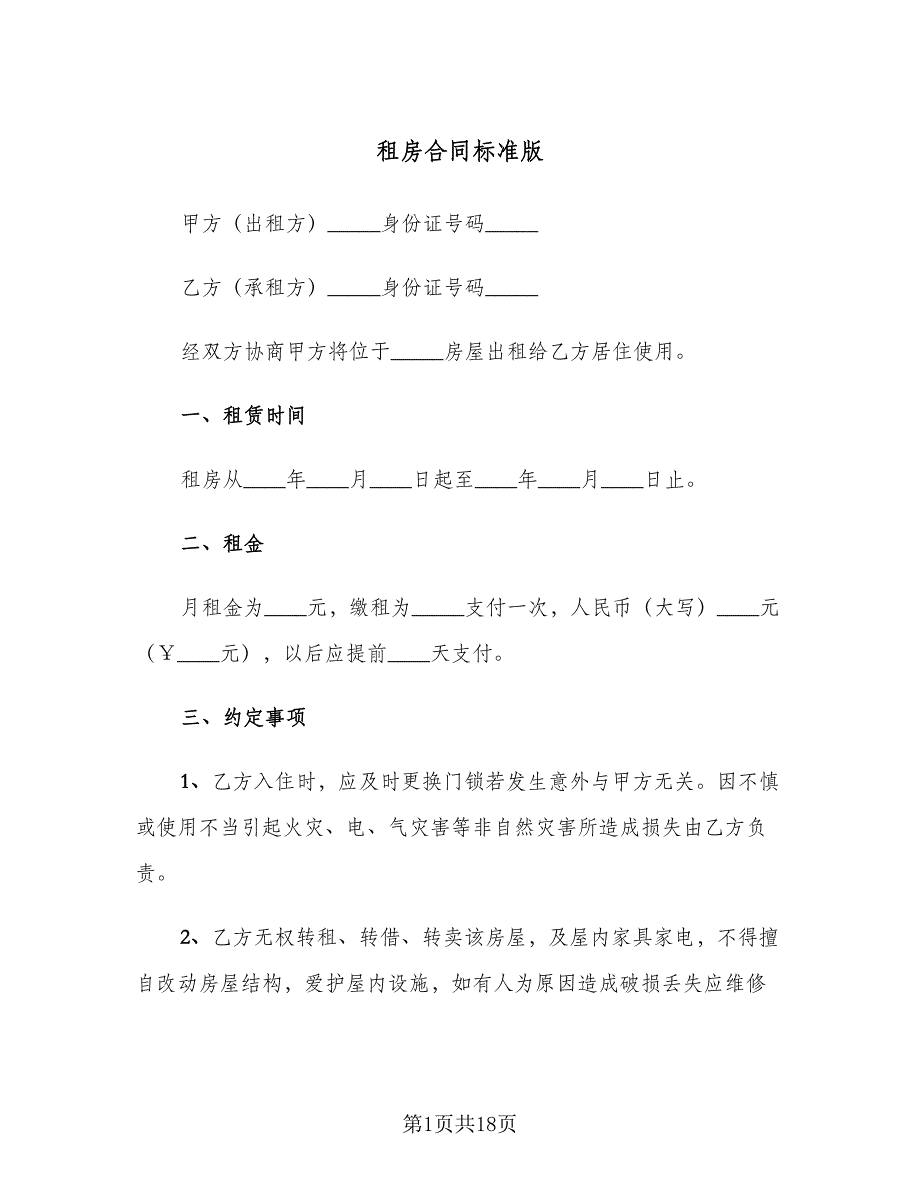 租房合同标准版
甲方（出租方）_____身份证号码_____
乙方（承租方）_____身份证号码_____
经双方协商甲方将位于_____房屋出租给乙方居住使用。
一、租赁时间
租房从____年____月____日起至____年____月____日止。
二、租金
月租金为____元，缴租为_____支付一次，人民币（大写）____元
（￥____元），以后应提前____天支付。
三、约定事项
1、乙方入住时，应及时更换门锁若发生意外与甲方无关。因不慎
或使用不当引起火灾、电、气灾害等非自然灾害所造成损失由乙方负
责。
2、乙方无权转租、转借、转卖该房屋，及屋内家具家电，不得擅
自改动房屋结构，爱护屋内设施，如有人为原因造成破损丢失应维修
第1页共18页